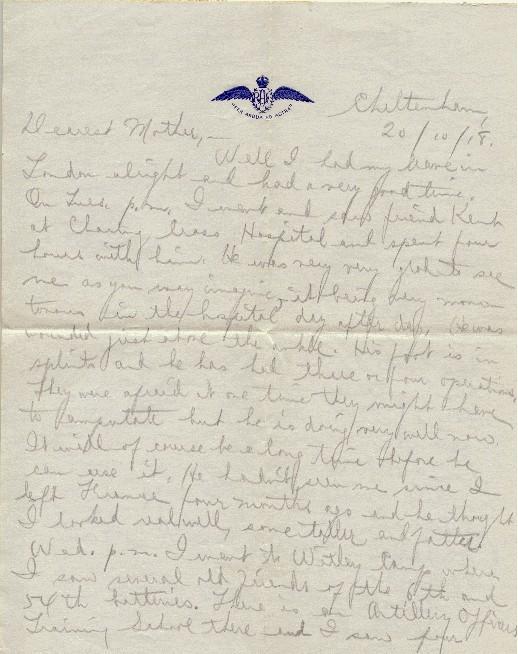 RAF
PER ARDUA AD ASTRA
Cheltenham,
20/10/18.
Dearest Mother,—
Well I had my leave in
London alright and had a very good time.
On Tues. p.m. I went and saw friend Kent
at Charing Cross Hospital and spent four
hours with him. He was very very glad to see
me as you may imagine, it being very mono-
tonous in the hospital day after day. He was
wounded just above the ankle. His foot is in
splints and he has had three or four operations,
They were afraid at one time they might have
to amputate but he is doing very well now.
It will of course be a long time before he
can use it. He hadn't seen me since I
left France four months ago and he thought
I looked real well, some taller and fatter.
Wed. p.m. I went to Witley Camp where
I saw several old friends of the and
54th batteries. There is an Artillery Officers
Training School there and I saw four